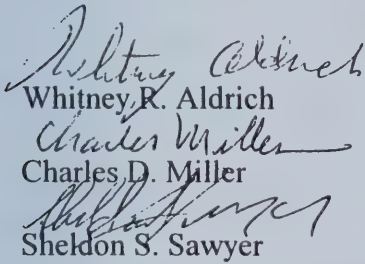 Whitney Aldrich
Whitney R. Aldrich
Charles Miller
Charles D. Miller
Sheldon S. Sawyer